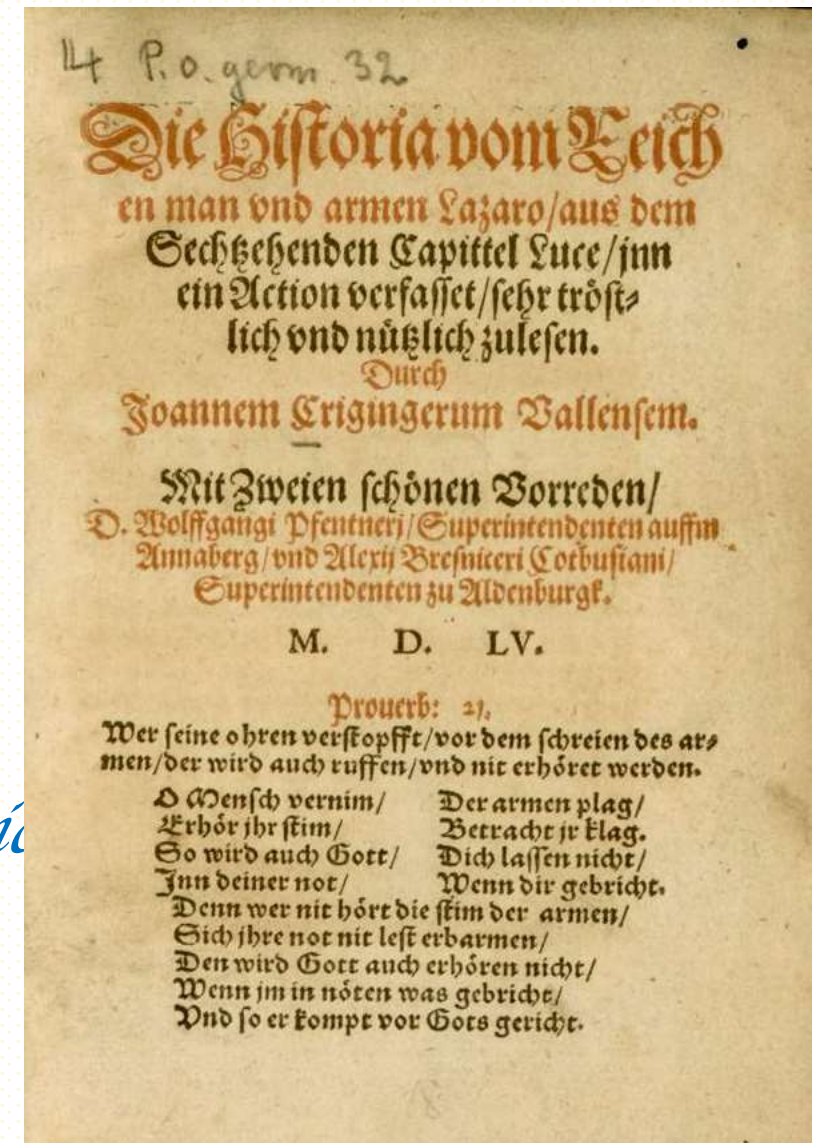 4 P.o. germ. 32
Die Historia vom Reich
en man vnd armen Lazaro/aus dem
Sechtzehenden Capittel Luce/jnn
ein Action verfasset/sehr tröst⸗
lich vnd nützlich zulesen.
Durch
Joannem Crigingerum Vallensem.
Mit Zweien schönen Vorreden/
D. Wolffgangi Pfentneri/Superintendenten auffm
Annaberg/vnd Alexij Bresniceri Cotbusiani/
Superintendenten zu Aldenburgk.
M. D. LV.
Prouerb: 21.
Wer seine ohren verstopfft/vor dem schreien des ar⸗
men/der wird auch ruffen/vnd nit erhöret werden.
O Mensch vernim/ Der armen plag/
Erhör jhr stim/ Betracht jr klag.
So wird auch Gott/ Dich lassen nicht/
Jnn deiner not/ Wenn dir gebricht.
Denn wer nit hört die stim der armen/
Sich jhre not nit lest erbarmen/
Den wird Gott auch erhören nicht/
Wenn jm in nöten was gebricht/
Vnd so er kompt vor Gots gericht.